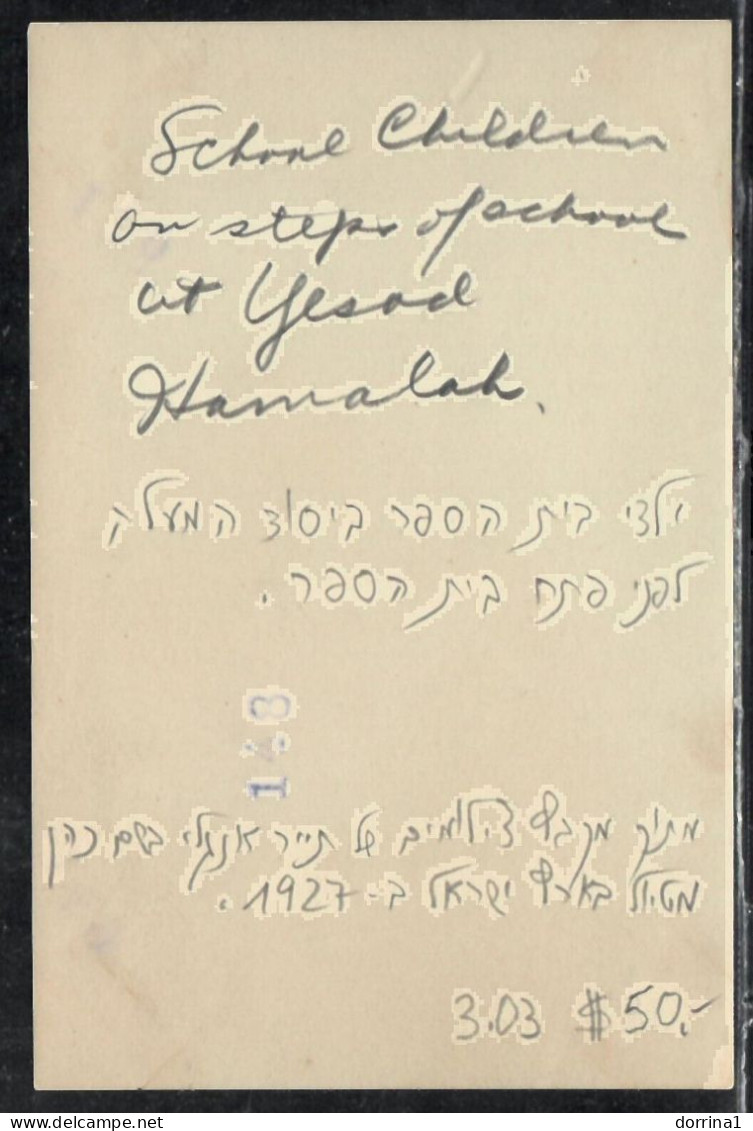 School Children
on steps of school
at Yesod
Hamalah.
ילדי בית הספר ביסוד המעלה
לפני פתח בית הספר.
148
מתוך מקבץ צילומים של תייר אנגלי בשם כהן
מטיול בארץ ישראל ב-1927.
3.03 $50.-
dorrina1